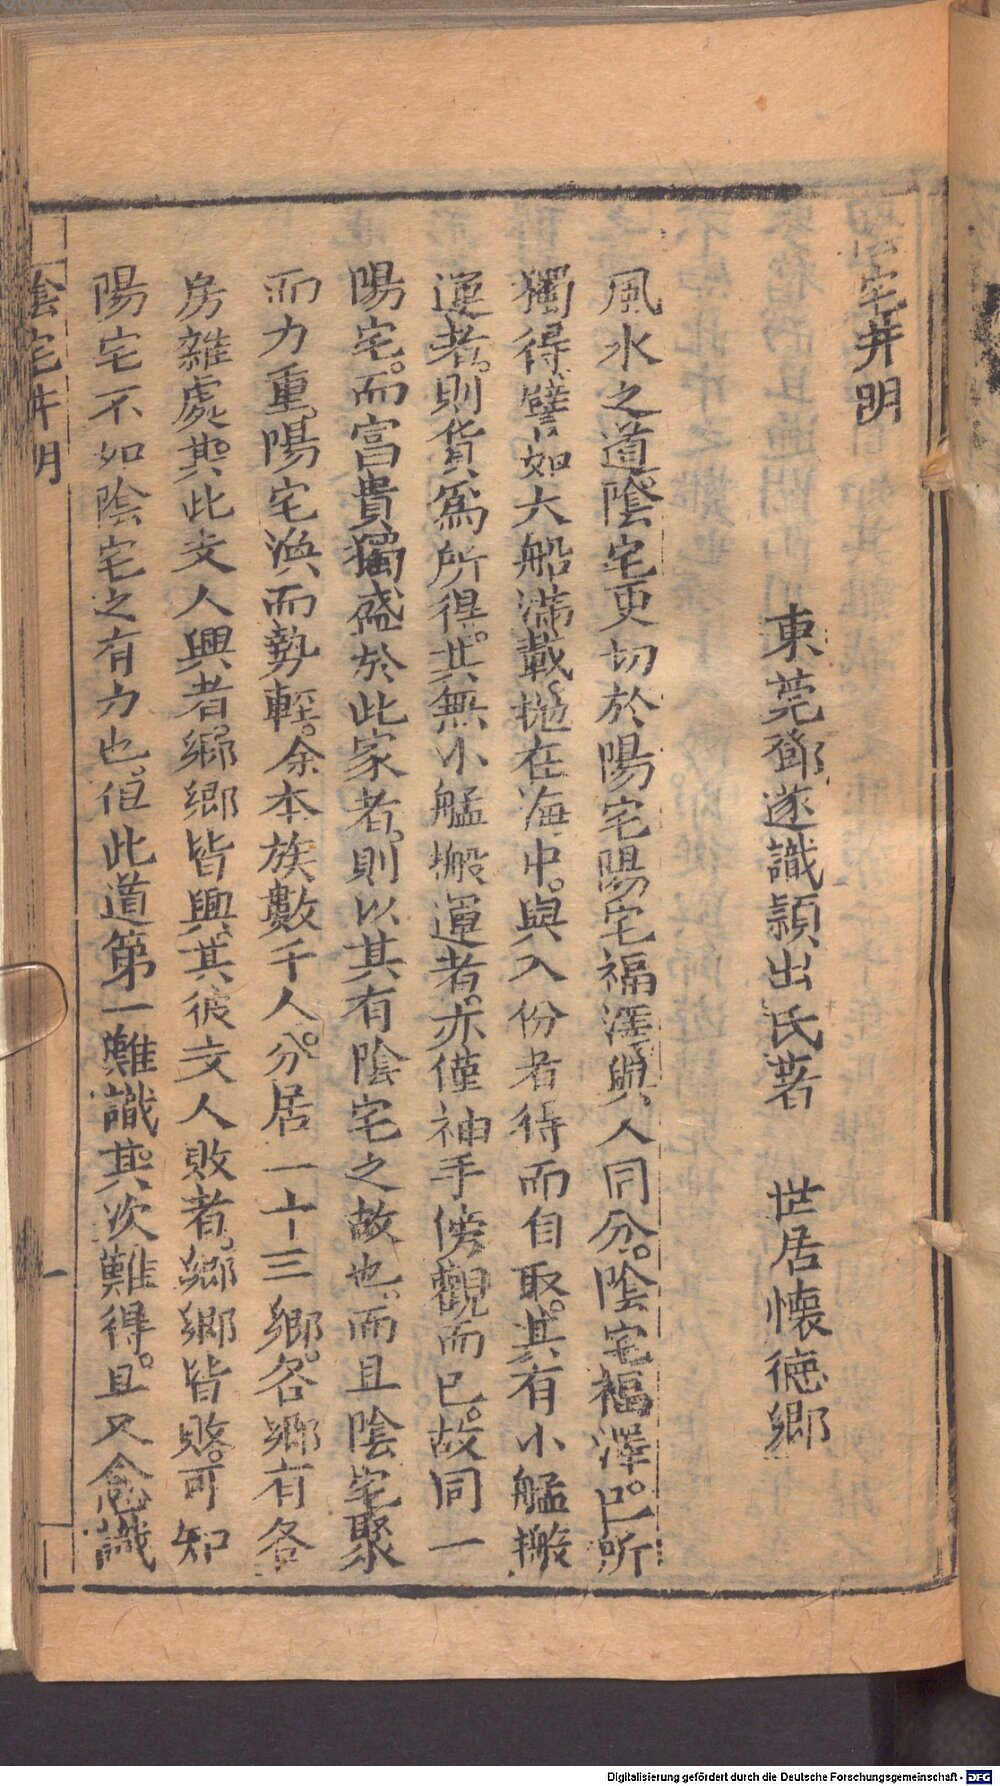 宅井明
東莞鄧遂識頴出氏著　世居懷德鄉
風水之道。陰宅更切於陽宅陽宅福澤與人同分。陰宅福澤。己所
獨得譬如大船滿載。拋在海中。與入份者待而自取。其有小艋搬
運者。則貨爲所得。其無小艋搬運者。亦僅袖手傍觀而已。故同一
陽宅。而富貴獨盛於此家者。則以其有陰宅之故也。而且陰宅聚
而力重。陽宅渙而勢輕。余本族數千人。分居一十三鄉。各鄉有各
房雜處。其此支人興者。鄉鄉皆興。其彼支人敗者。鄉鄉皆敗。可知
陽宅不如陰宅之有力也。但此道第一難識。其次難得。且又愈識
陰宅井明
一
Digitalisierung gefördert durch die Deutsche Forschungsgemeinschaft - DFG